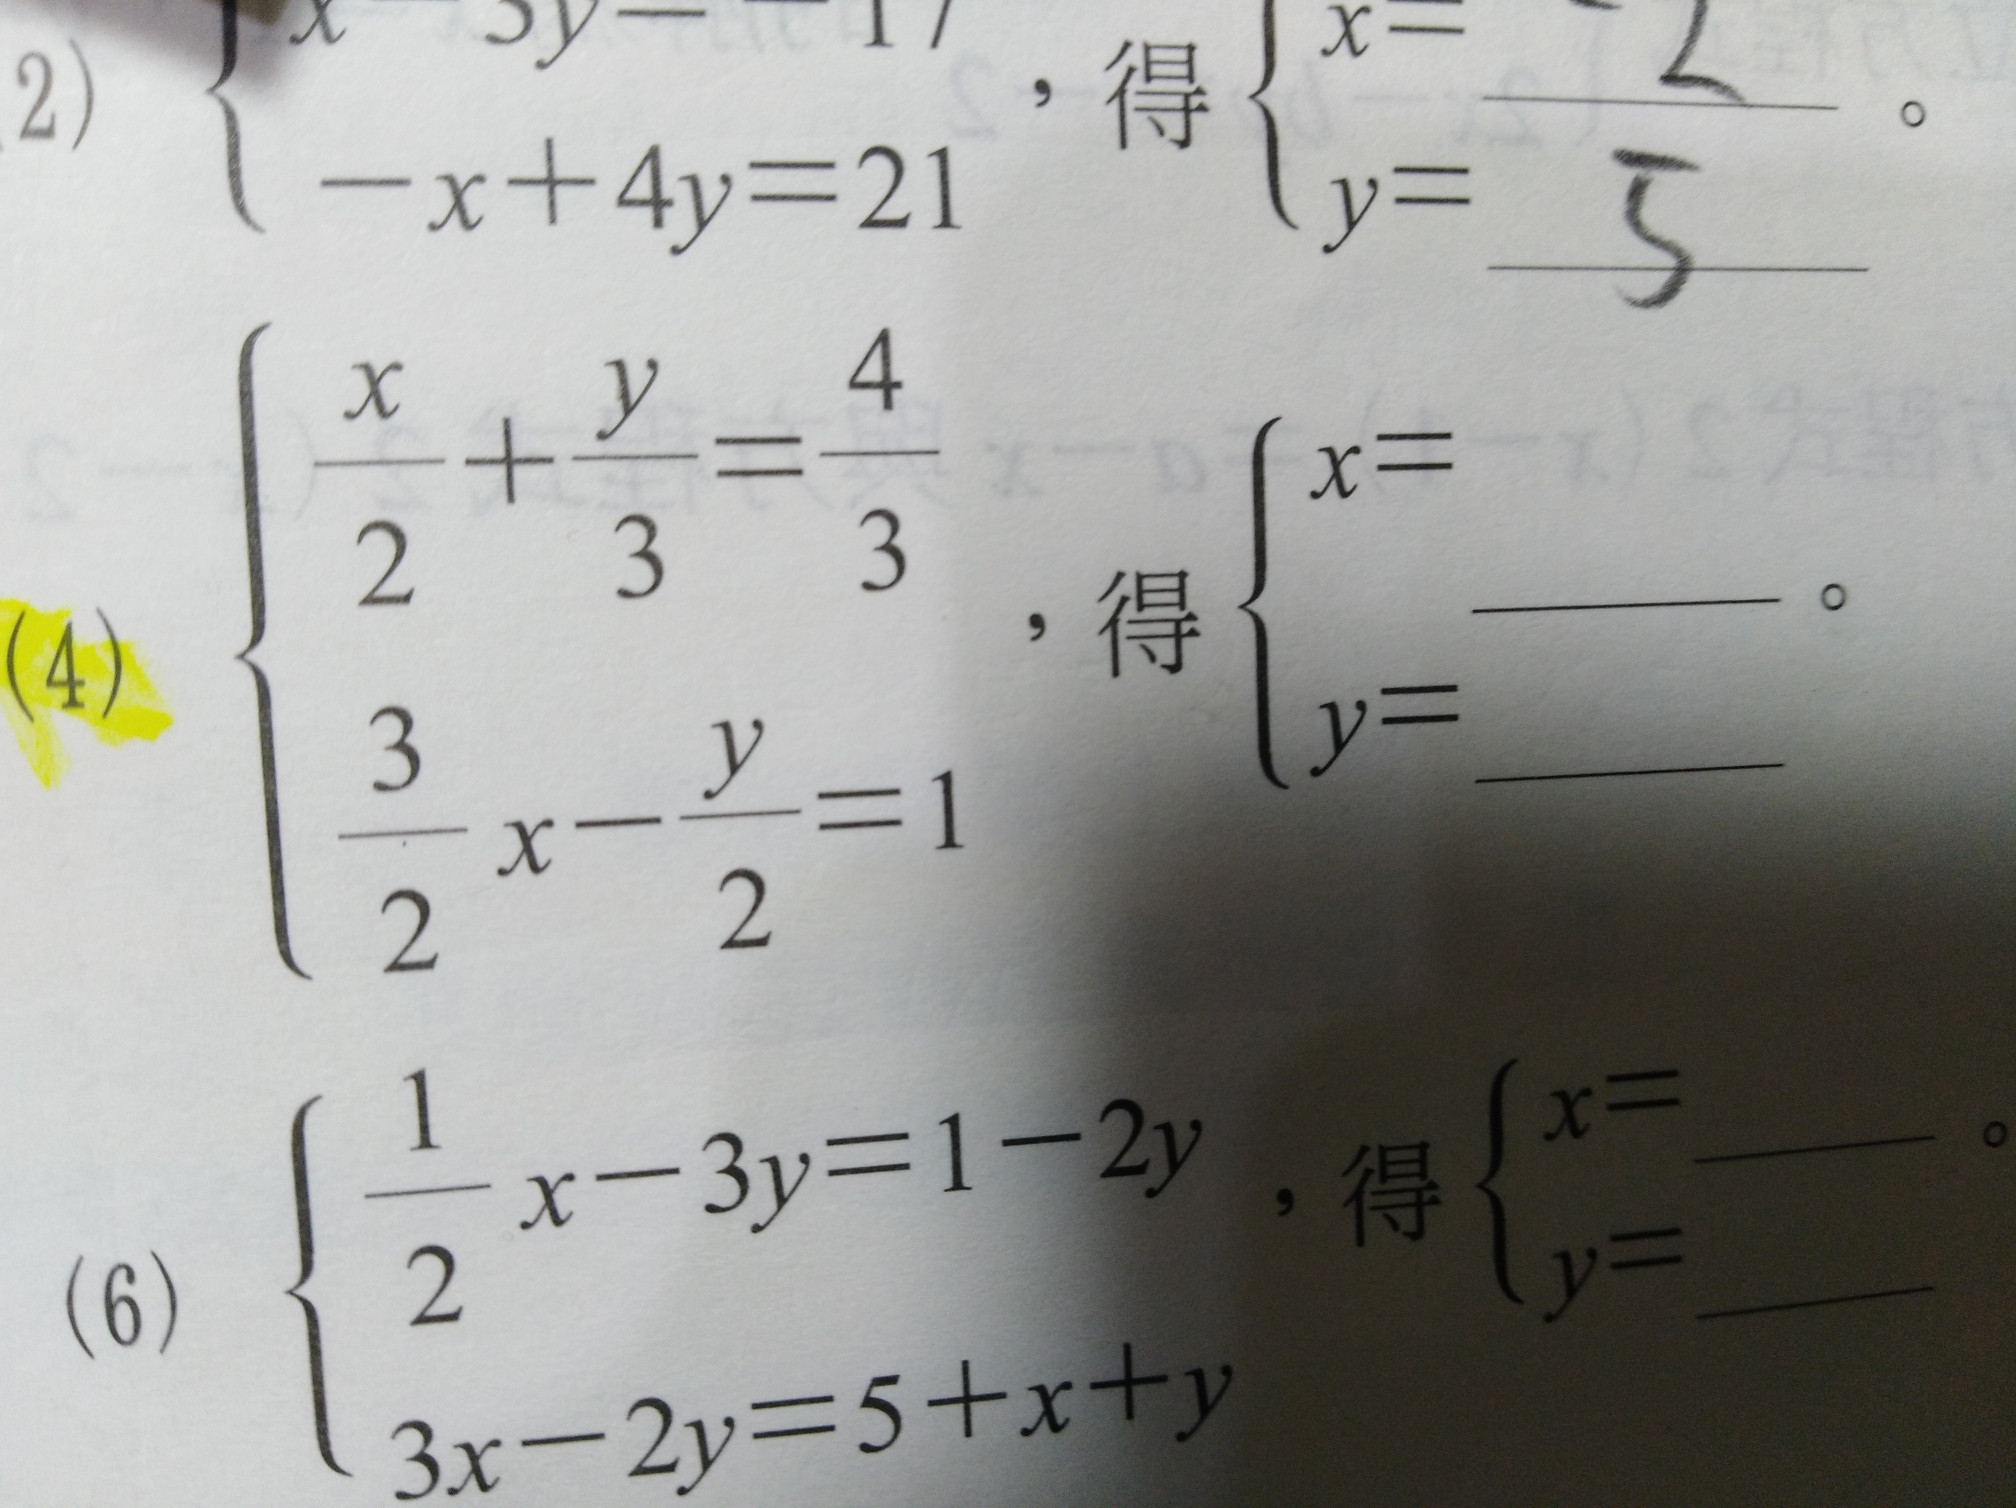 2) { x-3y=-17
-x+4y=21 ，得 { x= -1
y= 5 。
(4) { x/2+y/3=4/3
3/2 x-y/2=1 ，得 { x=
y= 。
(6) { 1/2 x-3y=1-2y
3x-2y=5+x+y ，得 { x=
y= 。